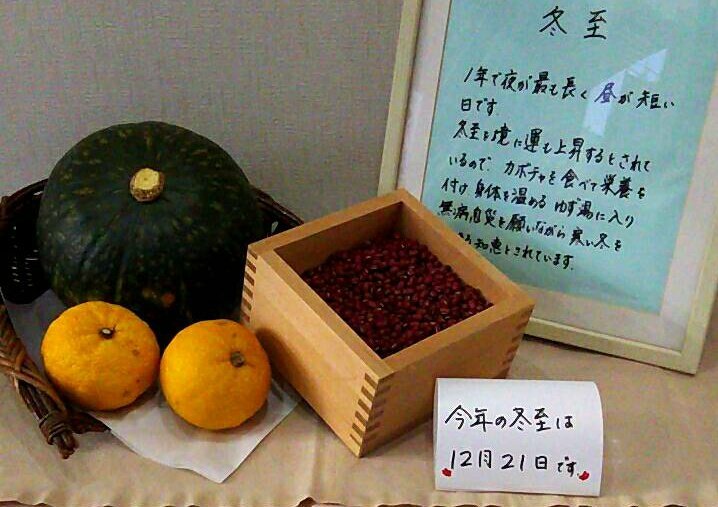 冬至
1年で夜が最も長く昼が短い
日です.
冬至を境に運も上昇するとされて
いるので、カボチャを食べて栄養を
付け身体を温めるゆず湯に入り
無病息災を願いながら寒い冬を
知恵とされています.
今年の冬至は
12月21日です.